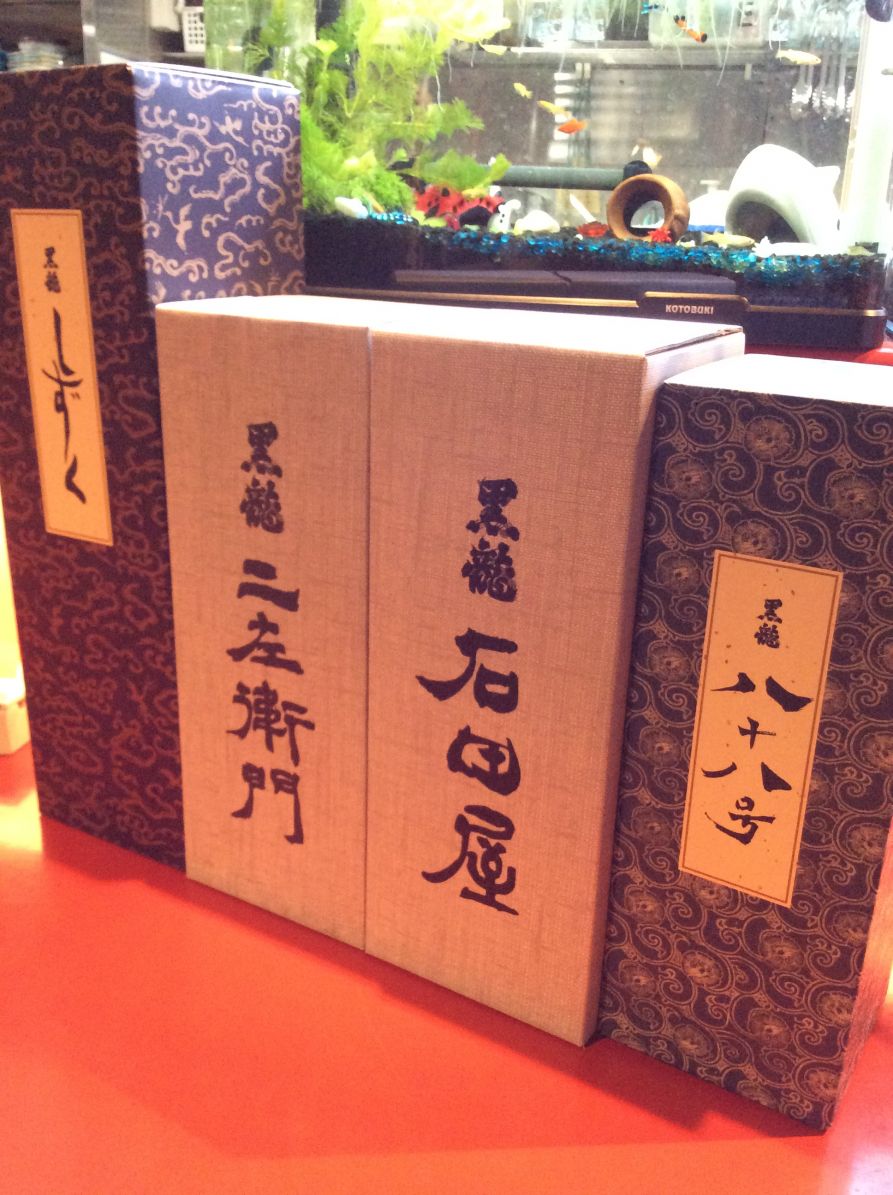 黒龍 しずく
黒龍 二左衛門
黒龍 石田屋
黒龍 八十八号
KOTOBUKI